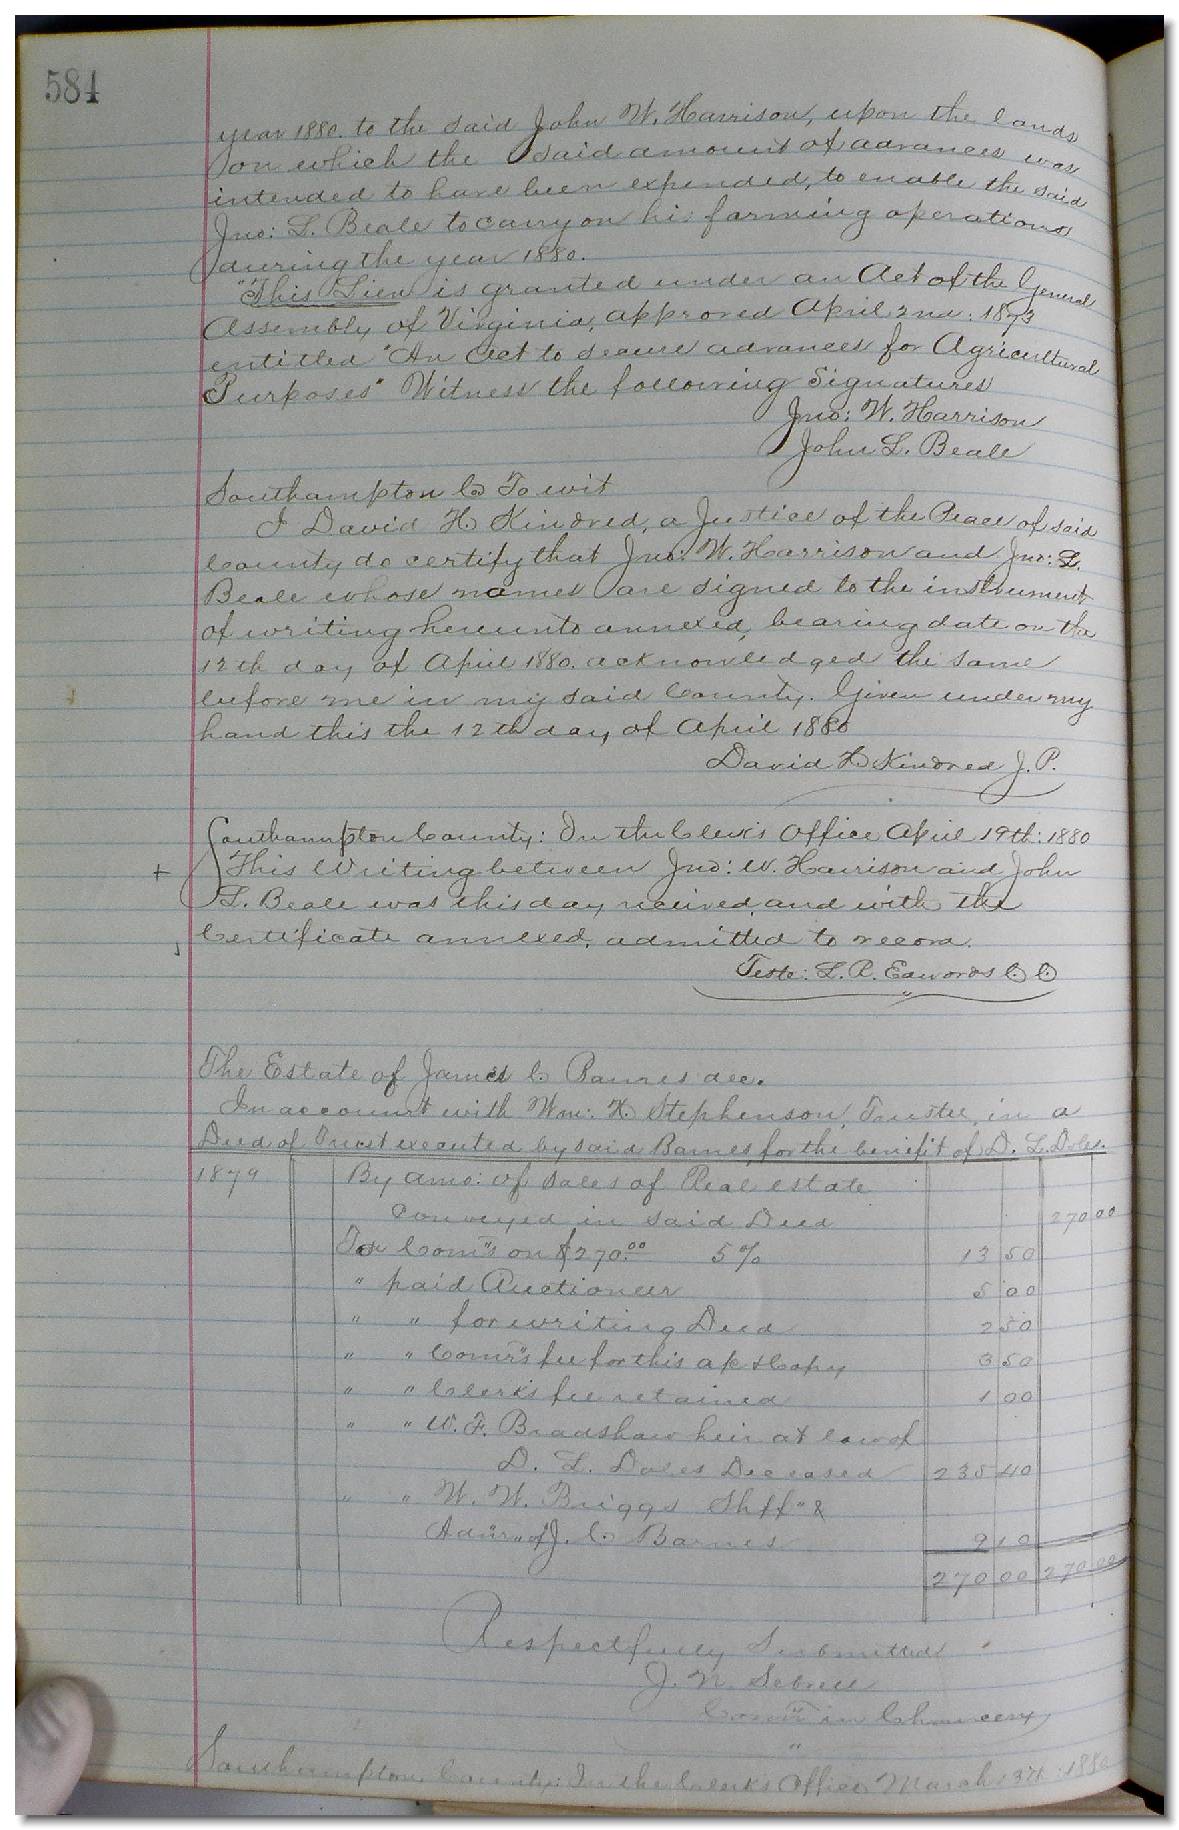 584
year 1880. to the said John W. Harrison, upon the lands
on which the said amount of advances was
intended to have been expended, to enable the said
Jno: L. Beale to carry on his farming operations
during the year 1880.
"This Lien is granted under an Act of the General
Assembly of Virginia, approved April 2nd: 1873
entitled "An Act to secure advances for Agricultural
Purposes" Witness the following Signatures
Jno: W. Harrison
John L. Beale
Southampton Co To wit
I David H. Kindred, a Justice of the Peace of said
County do certify that Jno: W. Harrison and Jno: L.
Beale whose names are signed to the instrument
of writing hereunto annexed, bearing date on the
12th day of April 1880. acknowledged the same
before me in my said County. Given under my
hand this the 12th day of April 1880
David H. Kindred J. P.
Southampton County: In the Clerk's Office April 19th: 1880
+ This Writing between Jno: W. Harrison and John
L. Beale was this day received, and with the
Certificate annexed, admitted to record.
Teste: L. R. Edwards C. C.
The Estate of James C. Barnes dec.
In account with Wm: H. Stephenson, Trustee, in a
Deed of Trust executed by said Barnes, for the benefit of D. L. Doles.
1879 By amo: of sales of Real estate
conveyed in said Deed 270 00
To Com"s on $270.00 5% 13 50
" paid Auctioneer 5 00
" " for writing Deed 2 50
" " Comr"s fee for this a/c & Copy 3 50
" " Clerk's fee retained 1 00
" " W. F. Bradshaw heir at law of
D. L. Doles Deceased 235 40
" " W. W. Briggs Shff" &
Admr" of J. C. Barnes 9 10
270 00 270 00
Respectfully Submitted
J. N. Sebrell
Comr" in Chancery
Southampton County: In the Clerk's Office March